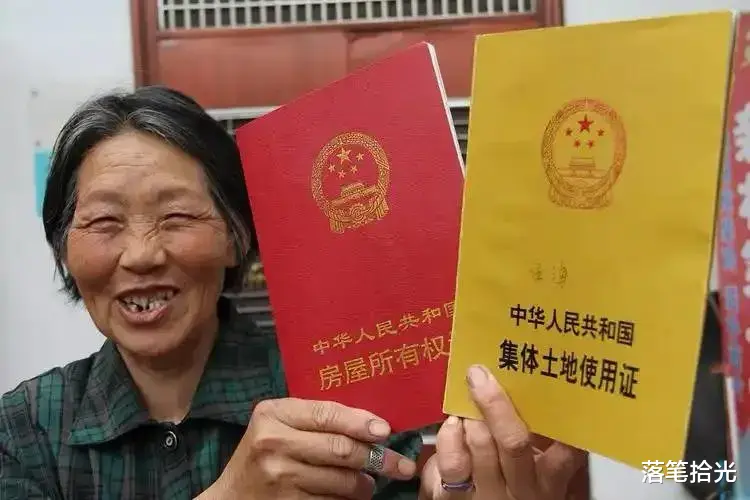 中华人民共和国
房屋所有权
中华人民共和国
集体土地使用证
落笔拾光